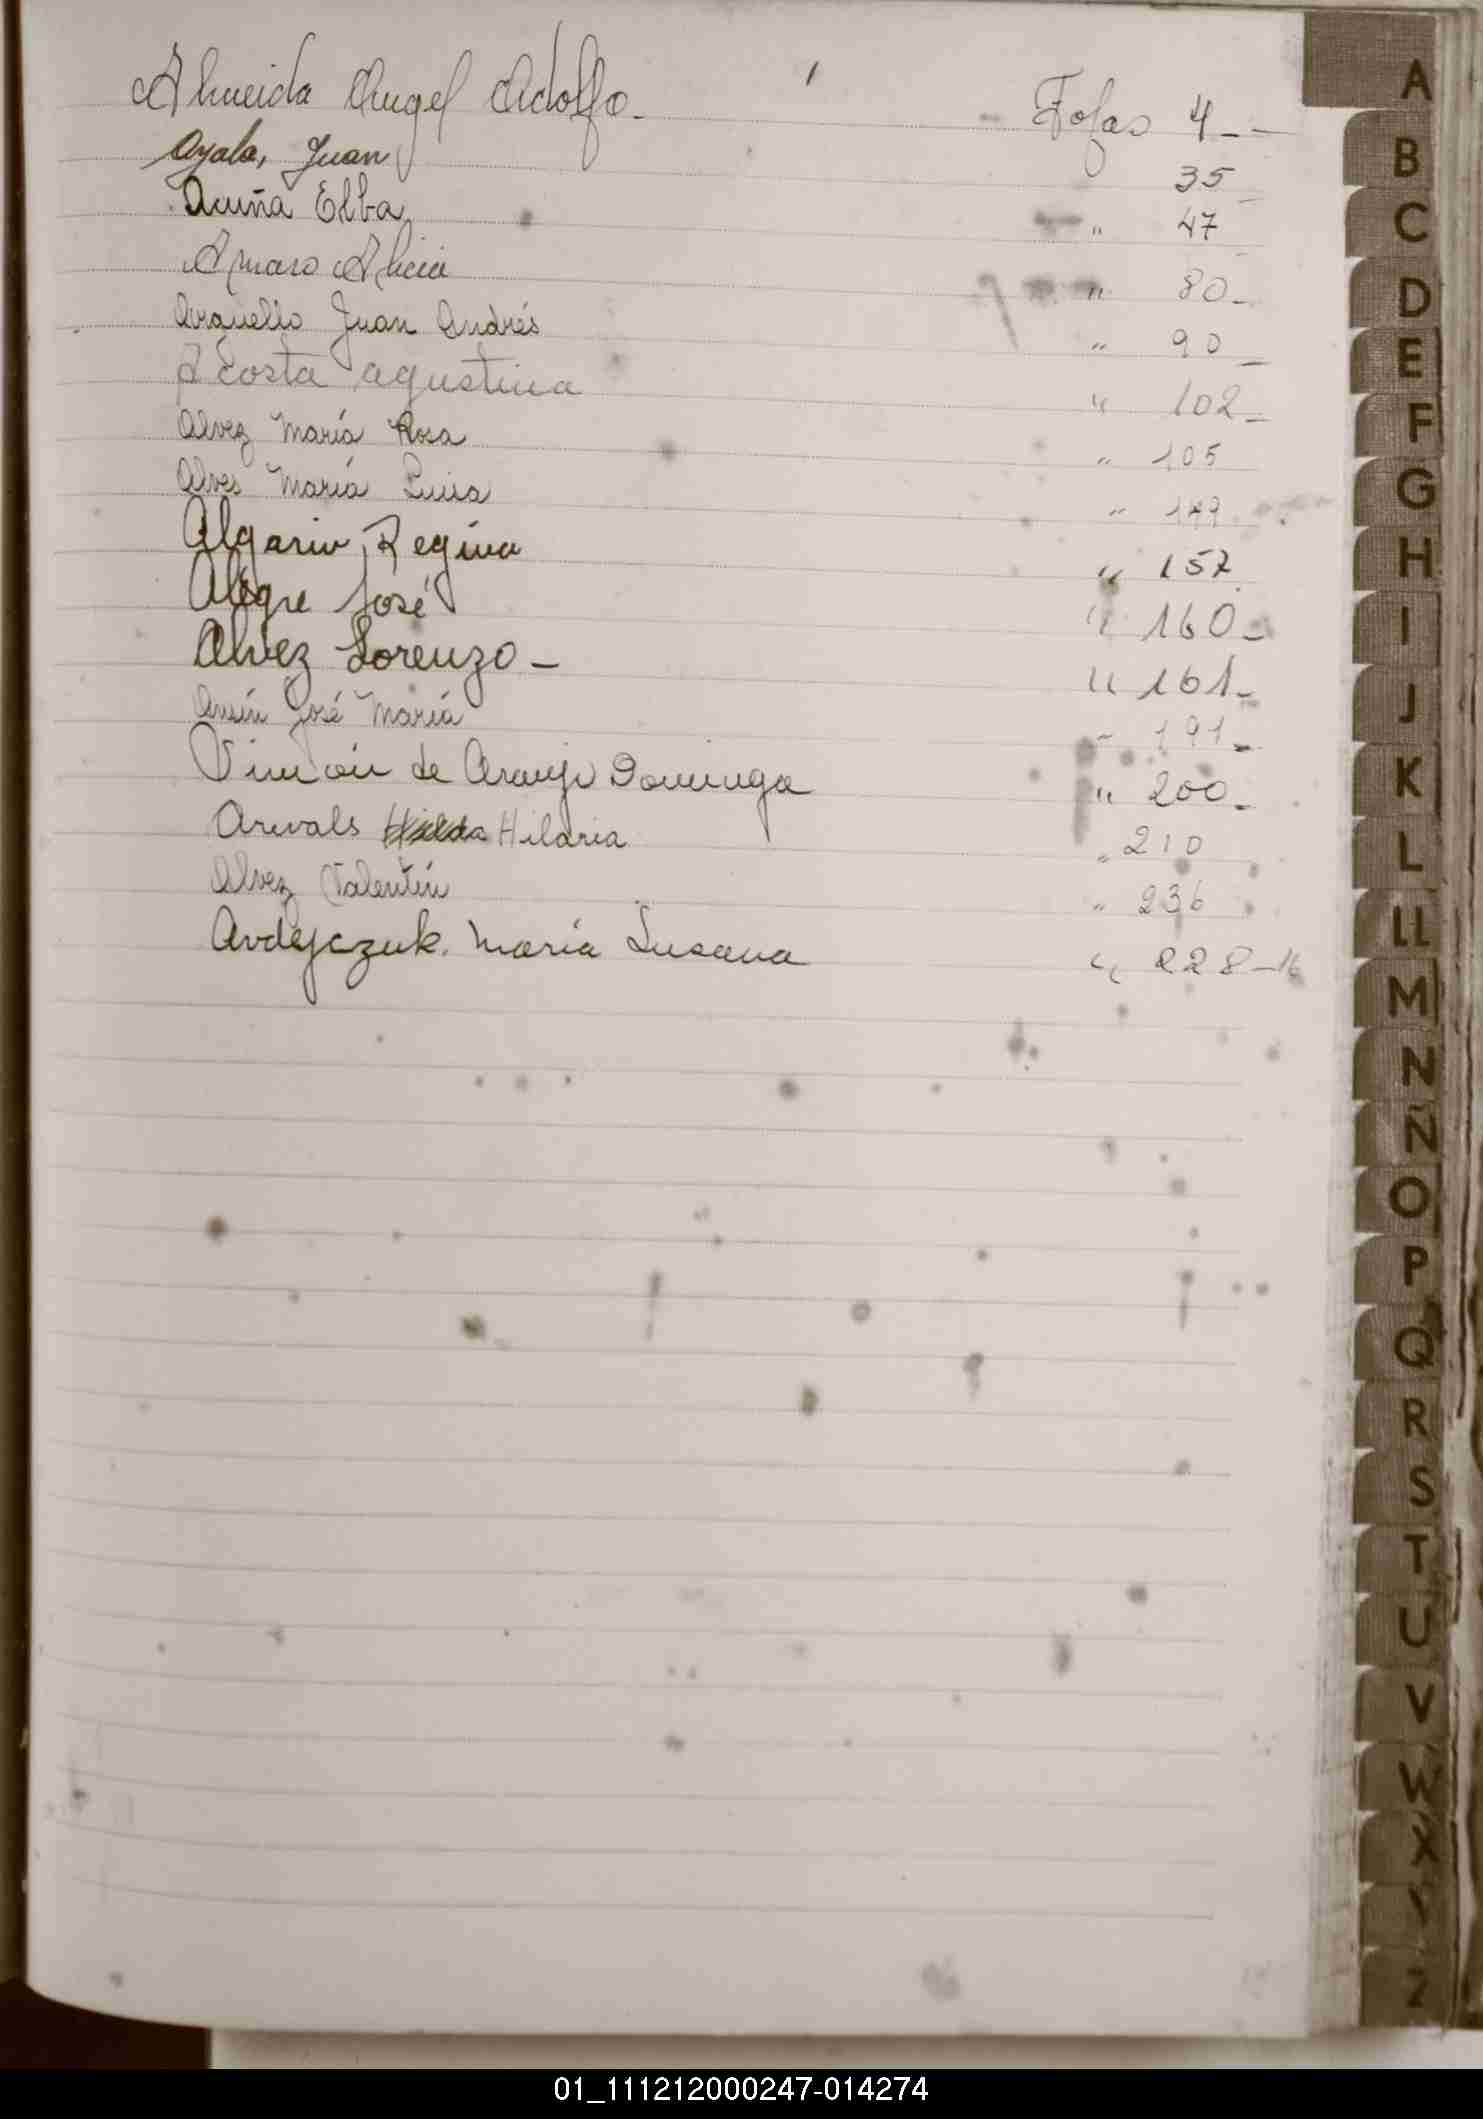 Almeida Angel Adolfo. Fojas 4 - -
Ayala, Juan 35
Acuña Elba " 47
Amaro Alicia " 80 -
Arguello Juan Andrés " 90 -
Acosta agustina " 102 -
Alvez María Rosa " 105
Alves María Luisa " 149
Algarin, Regina " 157
Alegre José " 160 -
Alvez Lorenzo - " 161 -
José María " 191 -
de Araujo Dominga " 200 -
Arevals Hilda Hilaria " 210
Alvez Valentín " 236
Avdejczuk. María Susana " 228 - 16
A
B
C
D
E
F
G
H
I
J
K
L
LL
M
N
Ñ
O
P
Q
R
S
T
U
V
W
X
Y
Z
01_111212000247-014274